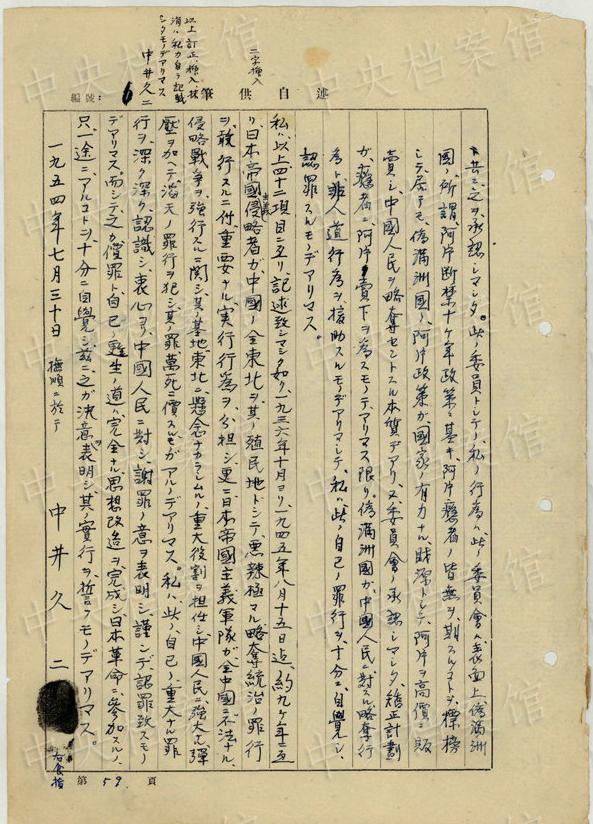 述自供筆
編號：6
二字挿入
以上訂正、挿入、抹
消ハ私ガ自ラ記載
シタモノデアリマス
中井久二
ト共ニ之ヲ承認シマシタ。此ノ委員トシテノ私ノ行為ハ、此ノ委員會ハ、表面上僞満洲
國ノ所謂、阿片断禁十ケ年政策ニ基キ、阿片癮者ノ皆無ヲ期スルコトヲ、標榜
シテ居テモ、僞満洲國ノ阿片政策ガ、國家ノ有力ナル、財源トシテ、阿片ヲ高價ニ販
賣シ、中國人民ヲ略奪セントスル本質デアリ、又委員會ノ承認シマシタ、矯正計劃
ガ、癮者ニ阿片ノ賣下ヲ為スモノデアリマス限リ、僞満洲國ガ、中國人民ニ対スル略奪行
為ト非人道行為ヲ援助スルモノデアリマシテ、私ハ此ノ自己ノ罪行ヲ、十分ニ自覺シ、
認罪スルモノデアリマス。
私ハ以上四十二項目ニ亙リ、記述致シマシタ如ク、一九三六年十月ヨリ、一九四五年八月十五日迄、約九ケ年ニ亙
リ、日本帝國主義侵略者ガ、中國ノ全東北ヲ、其ノ殖民地トシテ、悪辣極マル略奪統治ノ罪行
ヲ、敢行スルニ付、重要ナル、実行行為ヲ、分担シ、更ニ日本帝國主義軍隊ガ、全中國ニ不法ナル、
侵略戦争ヲ、強行スルニ関シ、其ノ基地東北ニ、懸念ナカラシムルノ、重大役割ヲ担任シ、中國人民ニ、強大ナル彈
壓ヲ加ヘテ、滔天ノ罪行ヲ犯シ、其ノ罪萬死ニ價スルモノガアルノデアリマス。私ハ、此ノ自己ノ重大ナル罪
行ヲ、深ク深ク認識シ、衷心ヨリ、中國人民ニ対シ、謝罪ノ意ヲ表明シ、謹ンデ認罪致スモノ
デアリマス。而シテ之ガ償罪ト、自己ノ更生ノ道ハ、完全ナル思想改造ヲ、完成シ、日本革命ニ参加スルノ、
只一途ニ、アルコトヲ、十分ニ自覺シ、茲ニ之ガ決意ヲ表明シ、其ノ實行ヲ、誓フモノデアリマス。
一九五四年七月三十日 撫順ニ於テ 中井久二
右食指
第59頁
中央档案馆